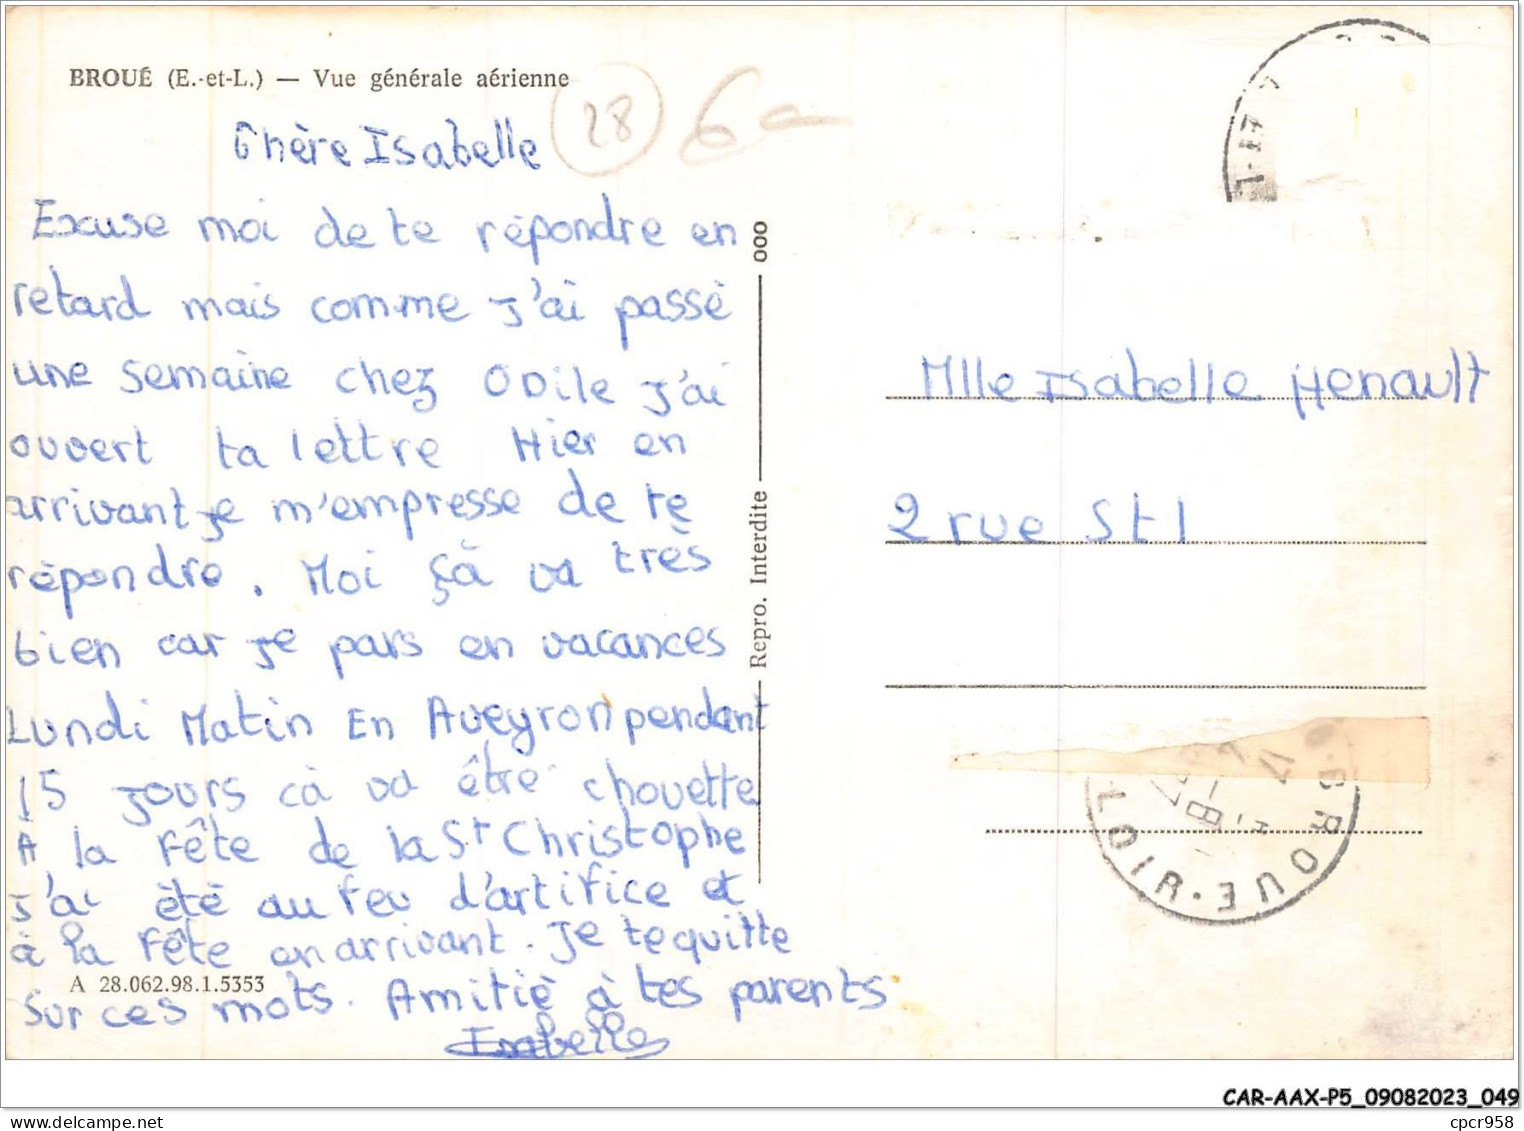 BROUÉ (E.-et-L.) — Vue générale aérienne
28
Chère Isabelle
Excuse moi de te répondre en
retard mais comme j'ai passé
une semaine chez Odile j'ai
ouvert ta lettre Hier en
arrivant je m'empresse de te
répondre. Moi çà va très
bien car je pars en vacances
Lundi Matin En Aveyron pendant
15 jours cà va être chouette
A la Fête de la St Christophe
j'ai été au feu d'artifice et
à la Fête en arrivant. Je te quitte
sur ces mots. Amitié à tes parents
Isabelle
A 28.062.98.1.5353
Repro. Interdite ooo
Mlle Isabelle Henault
2 rue St
BROUE
LOIR
CAR-AAX-P5_09082023_049
cpcr958